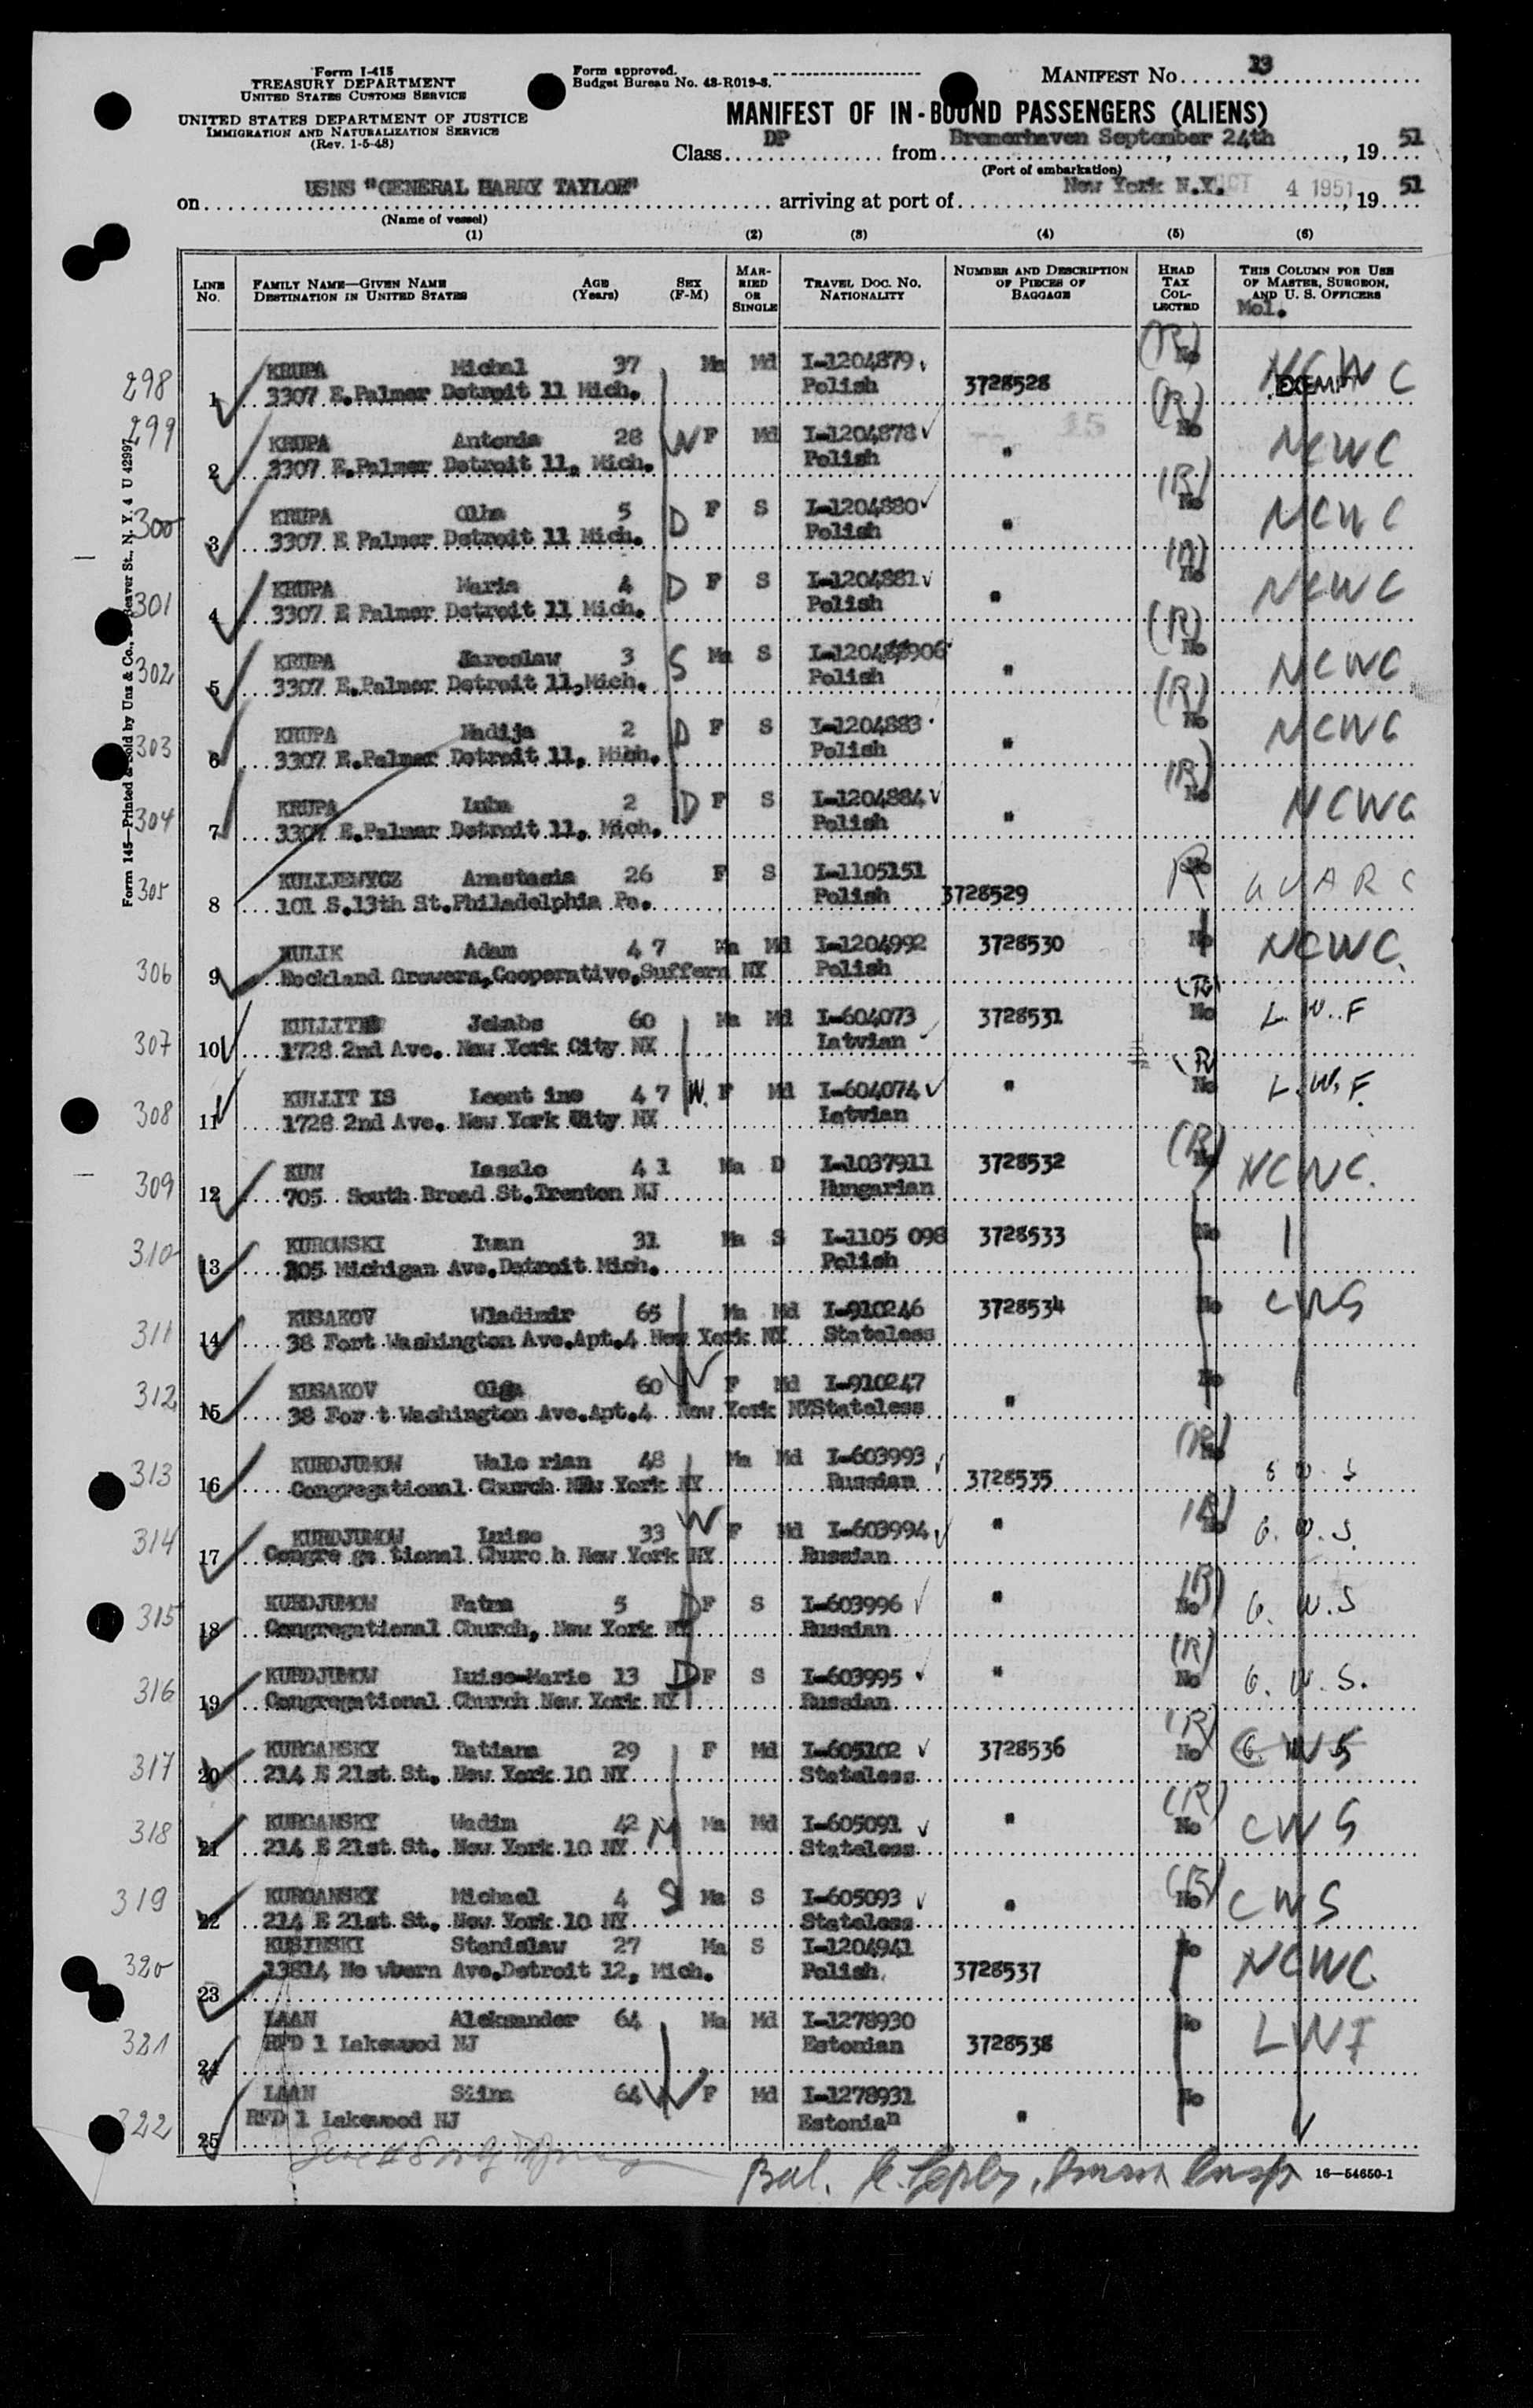 Form I-415
TREASURY DEPARTMENT
UNITED STATES CUSTOMS SERVICE
UNITED STATES DEPARTMENT OF JUSTICE
IMMIGRATION AND NATURALIZATION SERVICE
(Rev. 1-5-48)
Form approved.
Budget Bureau No. 43-R019-3.
MANIFEST No. 23
MANIFEST OF IN-BOUND PASSENGERS (ALIENS)
Class DP from Bremerhaven September 24th, 19 51
(Port of embarkation)
on USNS "GENERAL HARRY TAYLOR" arriving at port of New York N.Y. OCT 4 1951, 19 51
(Name of vessel)
(1) (2) (3) (4) (5) (6)
LINE No. FAMILY NAME—GIVEN NAME DESTINATION IN UNITED STATES AGE (Years) SEX (F-M) MARRIED OR SINGLE TRAVEL DOC. NO. NATIONALITY NUMBER AND DESCRIPTION OF PIECES OF BAGGAGE HEAD TAX COLLECTED THIS COLUMN FOR USE OF MASTER, SURGEON, AND U. S. OFFICERS
Mol.
298 1 KRUPA Michal 37 Ma Md I-1204879 (R) No NCWC
3307 E.Palmer Detroit 11 Mich. Polish 3728528 EXEMPT
299 2 KRUPA Antonia 28 W F Md I-1204878 15 (R) No NCWC
3307 E.Palmer Detroit 11, Mich. Polish "
300 3 KRUPA Olha 5 D F S I-1204880 (R) No NCWC
3307 E Palmer Detroit 11 Mich. Polish "
301 4 KRUPA Maria 4 D F S I-1204881 (R) No NCWC
3307 E Palmer Detroit 11 Mich. Polish "
302 5 KRUPA Jaroslaw 3 S Ma S (R) No NCWC
3307 E.Palmer Detroit 11,Mich. Polish "
303 6 KRUPA Nadija 2 D F S I-1204883 (R) No NCWC
3307 E.Palmer Detroit 11, Mich. Polish "
304 7 KRUPA Luba 2 D F S I-1204884 (R) No NCWC
3307 E.Palmer Detroit 11, Mich. Polish "
305 8 KULIJEWYCZ Anastasia 26 F S I-1105151 R No
101 S.13th St.Philadelphia Pa. Polish 3728529
306 9 KULIK Adam 4 7 Ma Md I-1204992 3728530 No NCWC.
Rockland Growers,Cooperative,Suffern NY Polish
307 10 KULLITIS Jekabs 60 Ma Md I-604073 3728531 (R) No L.W.F
1728 2nd Ave. New York City NY Latvian
308 11 KULLIT IS Leont ine 4 7 W. F Md I-604074 " (R) No L.W.F.
1728 2nd Ave. New York City NY Latvian
309 12 KUN Laszlo 4 1 Ma D I-1037911 3728532 (R) No NCWC.
705 South Broad St.Trenton NJ Hungarian
310 13 KUROWSKI Iwan 31 Ma S I-1105 098 3728533 No
305 Michigan Ave.Detroit Mich. Polish
311 14 KUSAKOV Wladimir 65 Ma Md I-910246 3728534 No CWS
38 Fort Washington Ave.Apt.4 New York NY Stateless
312 15 KUSAKOV Olga 60 W F Md I-910247 No
38 For t Washington Ave.Apt.4 New York NY Stateless "
313 16 KURDJUMOW Wale rian 48 Ma Md I-603993 (R) No
Congregational Church New York NY Russian 3728535
314 17 KURDJUMOW Luise 33 W F Md I-603994 " (R) No
Congre ga tional Churc h New York NY Russian
315 18 KURDJUMOW Fatma 5 D F S I-603996 " (R) No
Congregational Church, New York NY Russian
316 19 KURDJUMOW Luise-Marie 13 D F S I-603995 " (R) No
Congregational Church New York NY Russian
317 20 KURGANSKY Tatiana 29 F Md I-605102 3728536 (R) No C W S
214 E 21st St. New York 10 NY Stateless
318 21 KURGANSKY Wadim 42 Ma Md I-605091 " (R) No CWS
214 E 21st St. New York 10 NY Stateless
319 22 KURGANSKY Michael 4 S Ma S I-605093 " (R) No CWS
214 E 21st St. New York 10 NY Stateless
320 23 KUSINSKI Stanislaw 27 Ma S I-1204941 No NCWC.
13814 Ne wbern Ave.Detroit 12, Mich. Polish 3728537
321 24 LAAN Aleksander 64 Ma Md I-1278930 No LWF
RFD 1 Lakewood NJ Estonian 3728538
322 25 LAAN Siina 64 W F Md I-1278931 No
RFD 1 Lakewood NJ Estonian "
16—54650-1